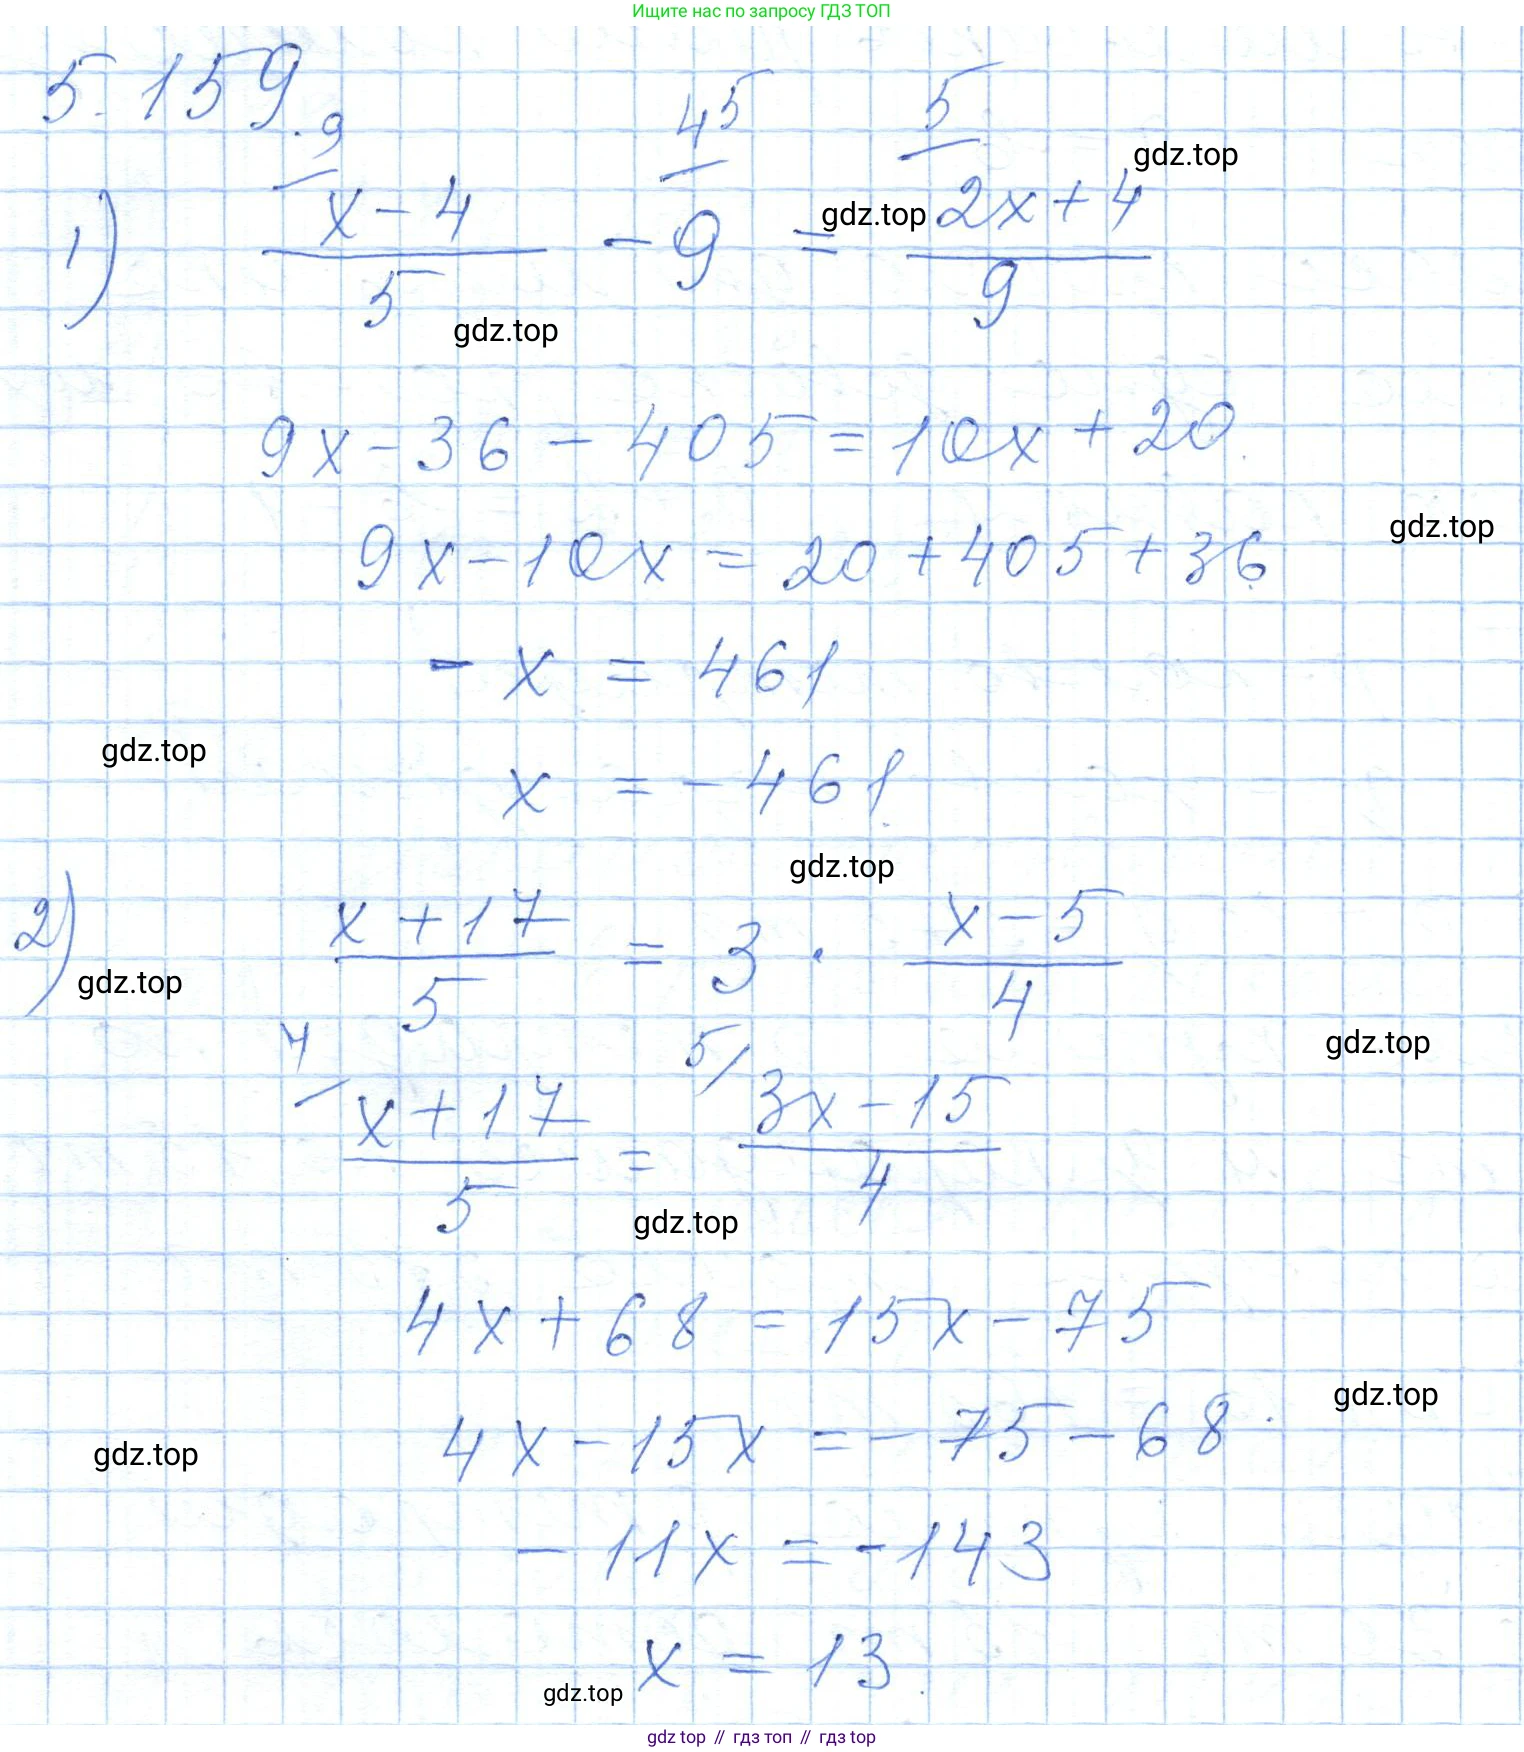 Ищите нас по запросу ГДЗ ТОП
5.159.
1) ⁹⁄ (x-4)/5 - ⁴⁵⁄ 9 = ⁵⁄ (2x+4)/9
gdz.top
gdz.top
gdz.top
9x-36-405=10x+20.
9x-10x=20+405+36
gdz.top
-x=461
gdz.top
x=-461.
gdz.top
2) (x+17)/5 = 3·(x-5)/4
gdz.top
gdz.top
⁴⁄ (x+17)/5 = ⁵⁄ (3x-15)/4
gdz.top
4x+68=15x-75
gdz.top
4x-15x=-75-68.
gdz.top
-11x=-143
x=13.
gdz.top
gdz top // гдз топ // гдз top